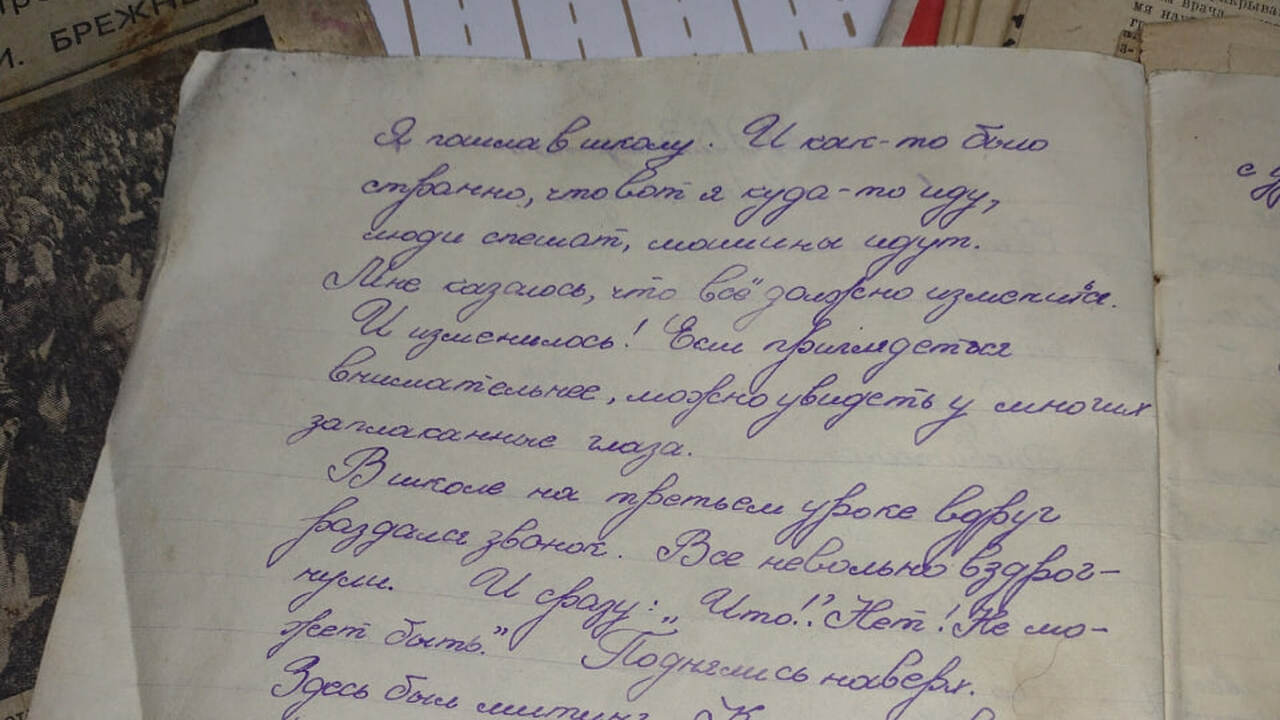 И. БРЕЖНЕ
врача
мя нау
Я пошла в школу. И как-то было
странно, что вот я куда-то иду,
люди спешат, машины идут.
Мне казалось, что "всё" должно измениться.
И изменилось! Если приглядеться
внимательнее, можно увидеть у многих
заплаканные глаза.
В школе на третьем уроке вдруг
раздался звонок. Все невольно вздрог-
нули. И сразу: „Что!? Нет! Не мо-
жет быть.” Поднялись наверх.
Здесь был митинг.